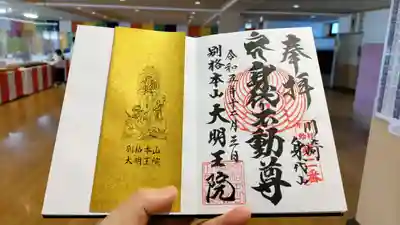 奉拝
川崎
身代山
身代不動尊
令和五年十二月三日
別格本山
大明王院
別格本山
大明王院